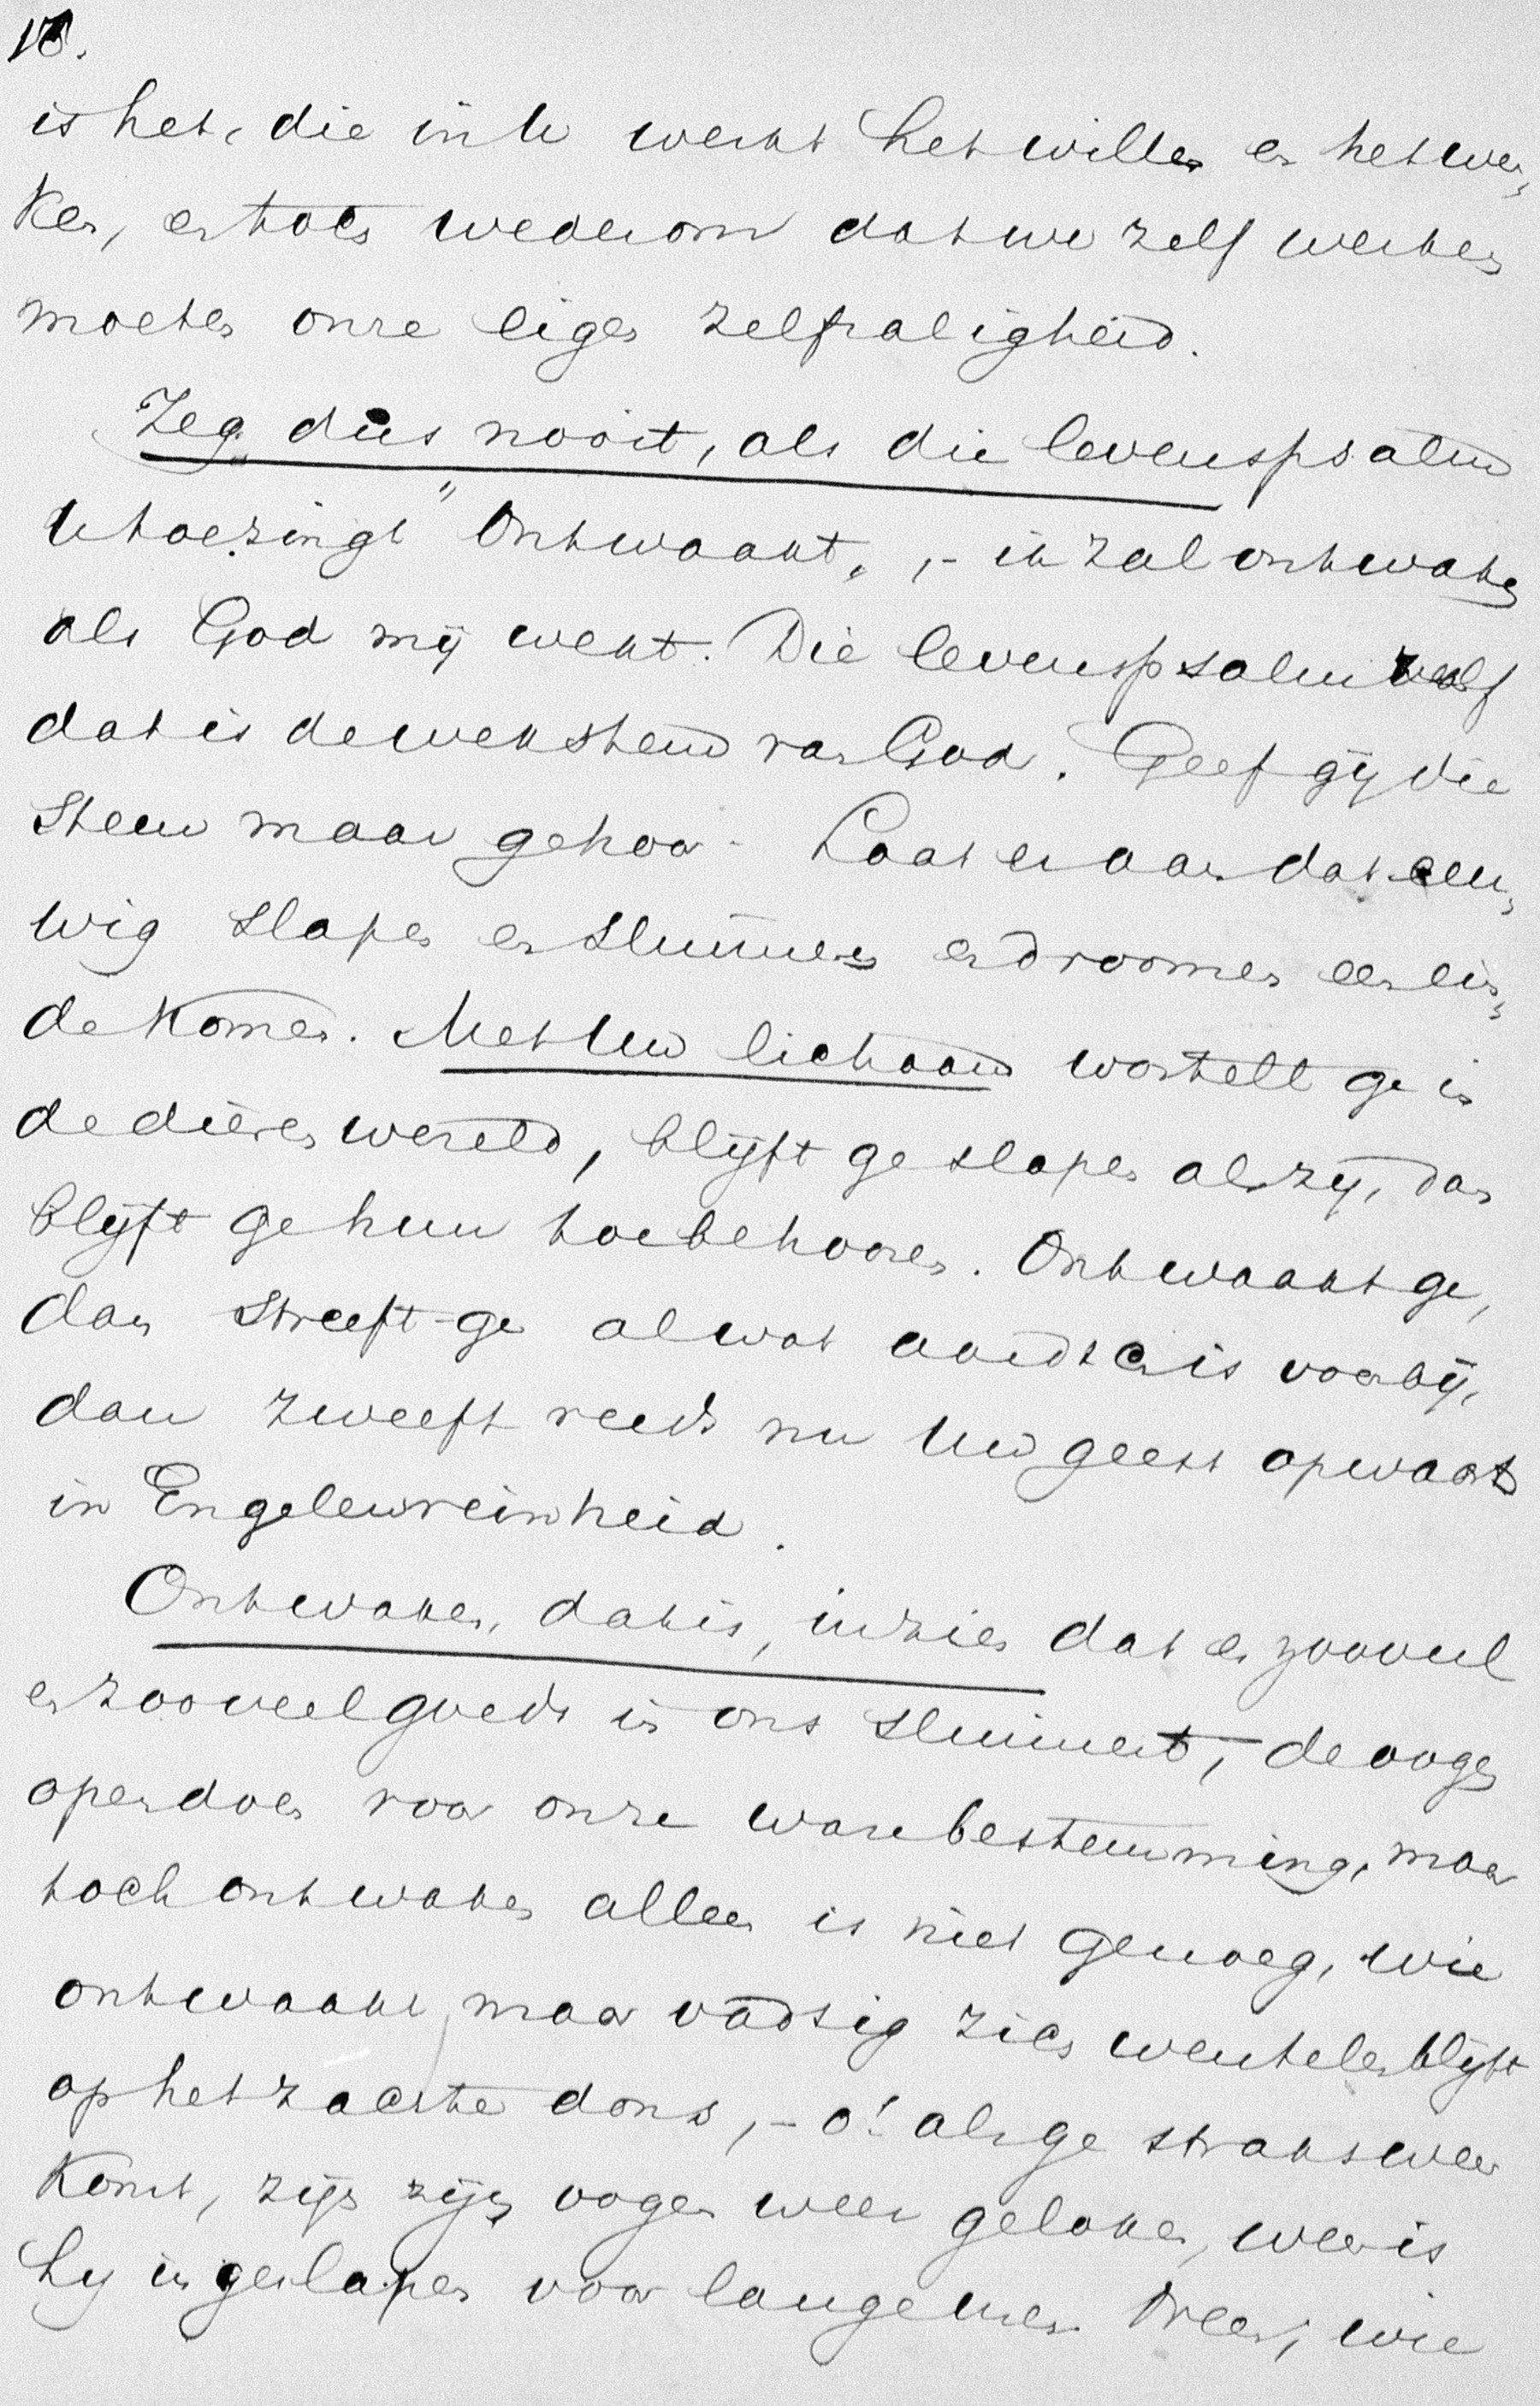 18.
is het, die in U werkt het willen en het wer„
ken, en toch wederom dat we zelf werken
moeten onze eigen zelfzaligheid.
Zeg dus nooit, als die levenspsalm
U toezingt "Ontwaakt„ ,- ik zal ontwaken
als God mij wekt. Die levenspsalm zelf
dat is de wekstem van God. Geef gij die
stem maar gehoor. Laat er aan dat eeu„
wig slapen en sluimeren en droomen een ein„
de komen. Met Uw lichaam wortelt ge in
de dierenwereld, blijft ge slapen als zij, dan
blijft ge hun toebehooren. Ontwaakt ge,
dan streeft ge al wat aardsch is voorbij,
dan zweeft reeds nu Uw geest opwaarts
in Engelenreinheid.
Ontwaken, dat is, inzien dat er zooveel
en zooveel goeds in ons sluimert, de oogen
opendoen voor onze ware bestemming, maar
toch ontwaken alleen is niet genoeg, wie
ontwaakt, maar vadsig zich wentelen blijft
op het zachte dons, - o! als ge straks weer
komt, zijn zijn oogen weer geloken, weer is
hij ingeslapen voor lange uren. Neen, wie